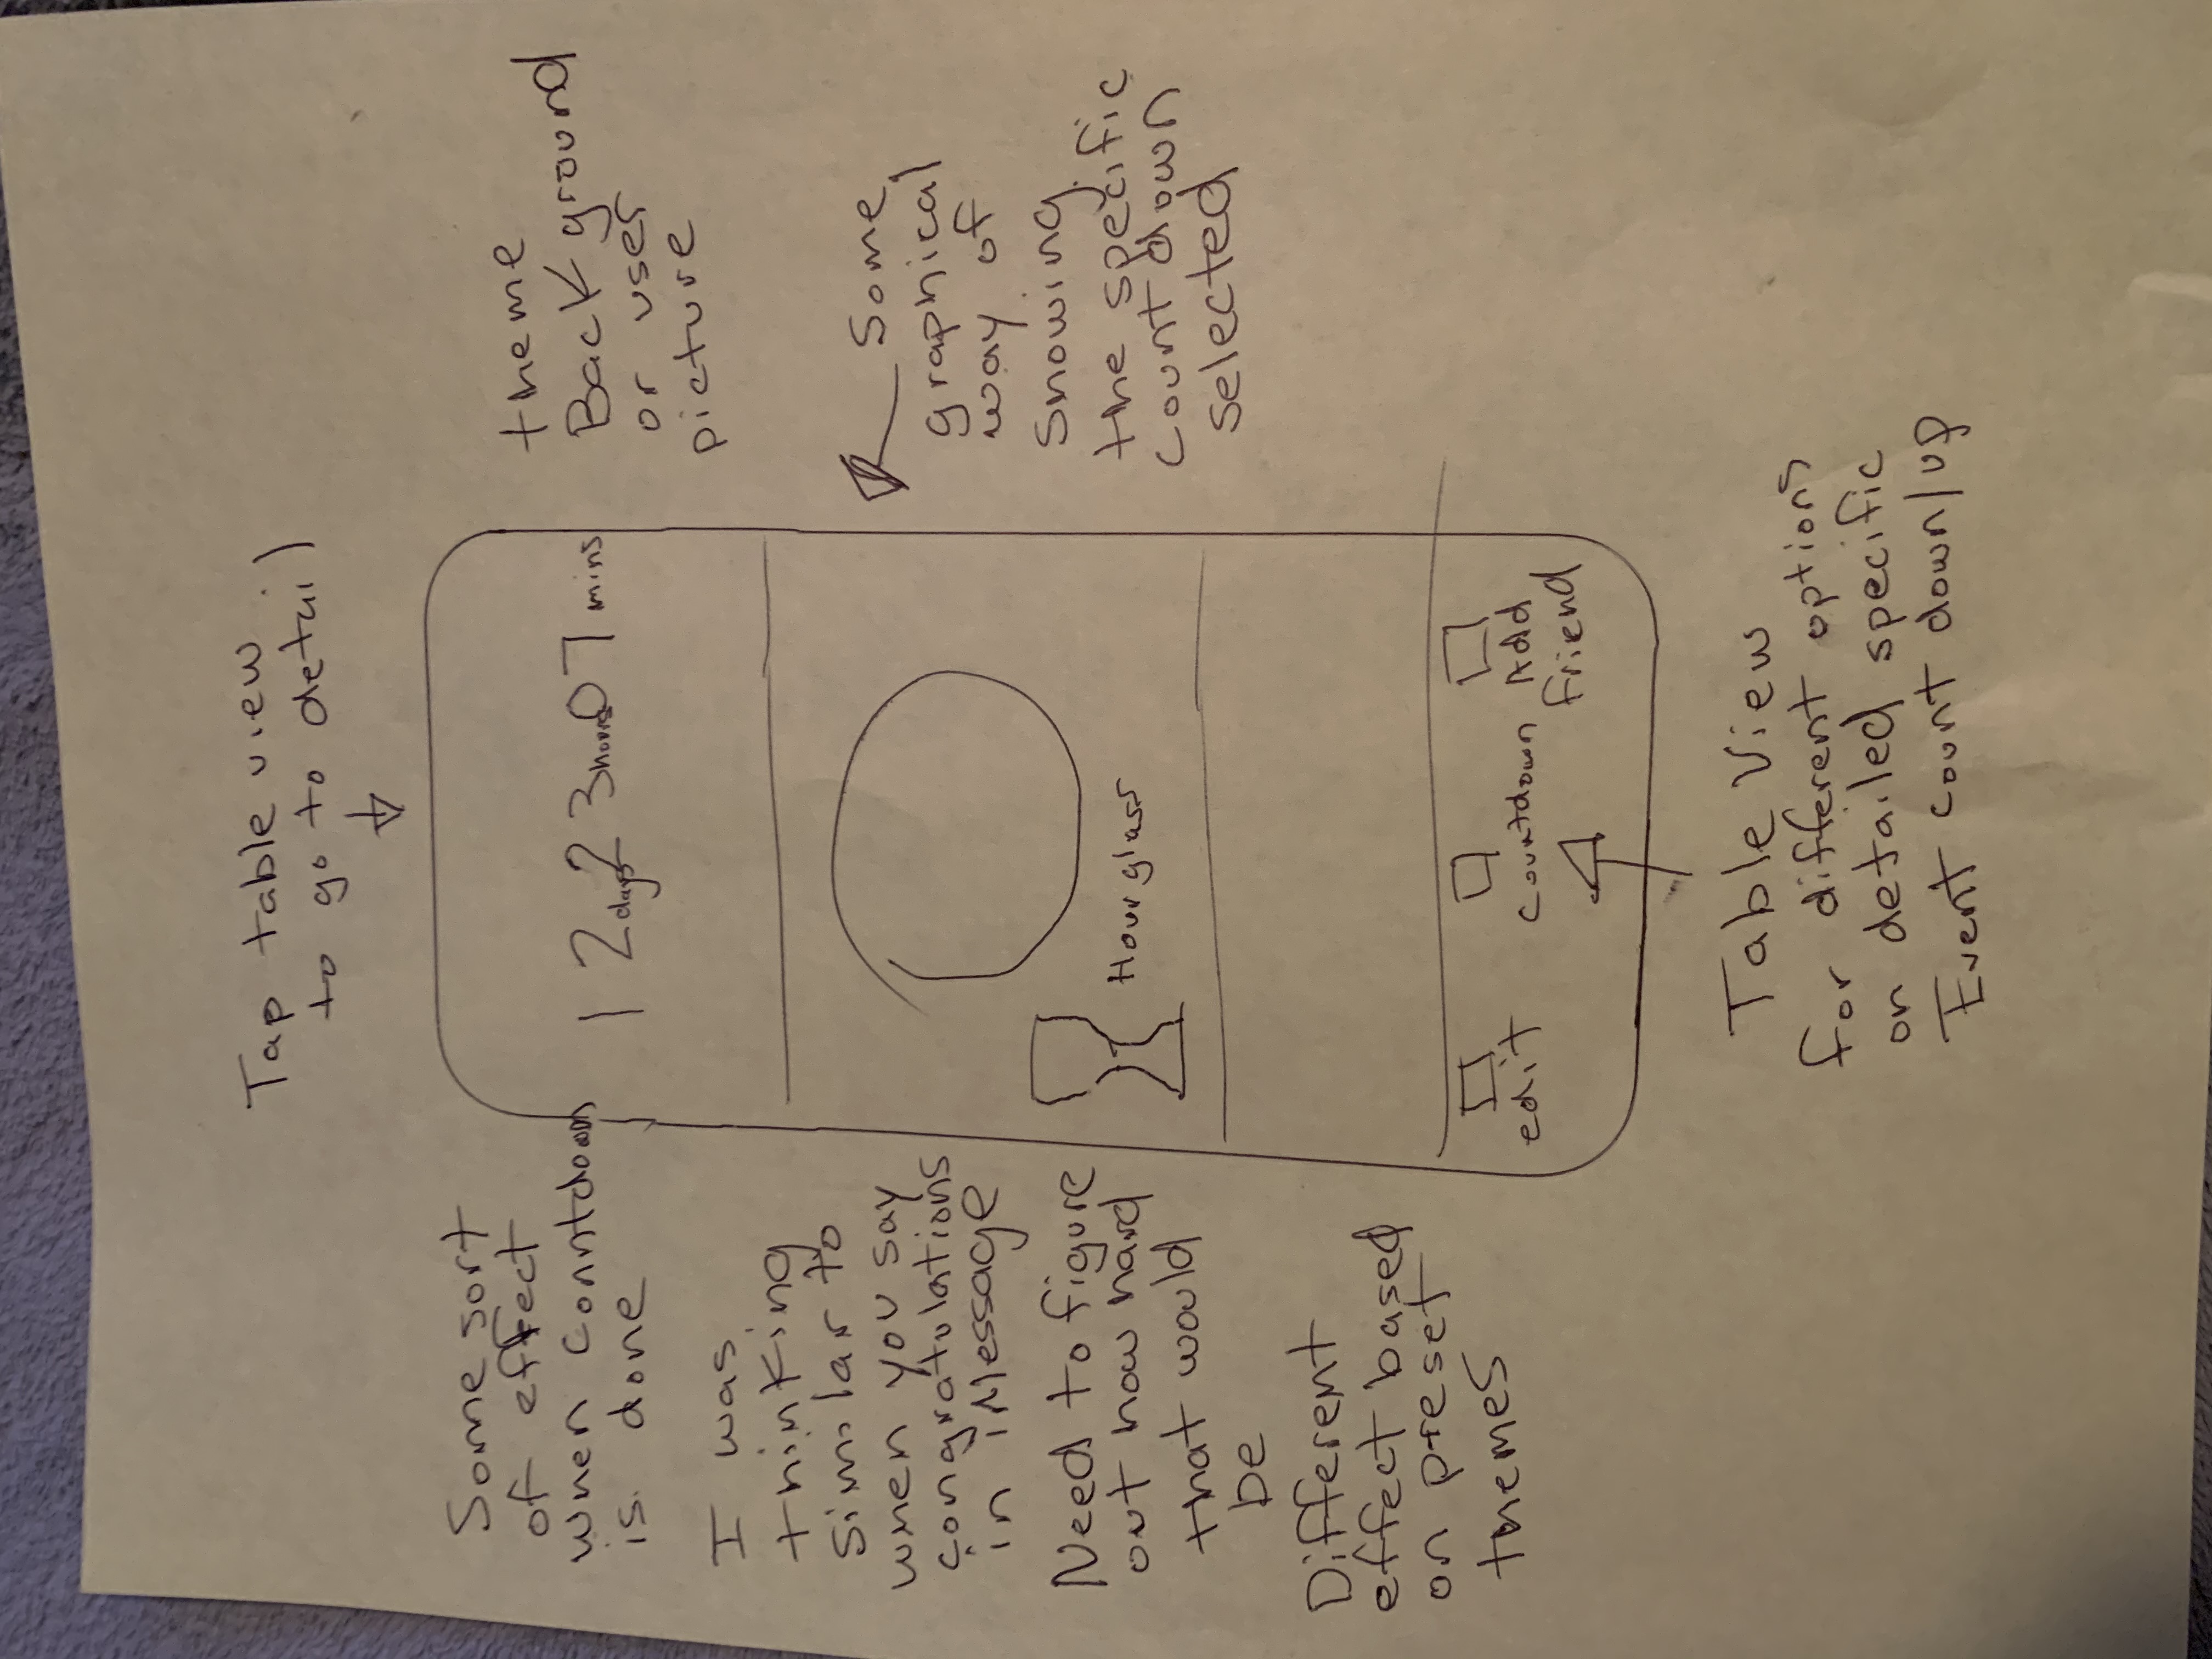 Tap table view
to go to detail
Some sort
of effect
when Countdown
is done
I was
thinking
similar to
when you say
congratulations
in iMessage
Need to figure
out how hard
that would
be
Different
effect based
on preset
themes
12 days 23 hours 07 mins
Hourglass
edit
Countdown
Add
friend
theme
Background
or user
picture
Some
graphical
way of
showing
the specific
count down
selected
Table View
for different options
on detailed specific
Event count down/up